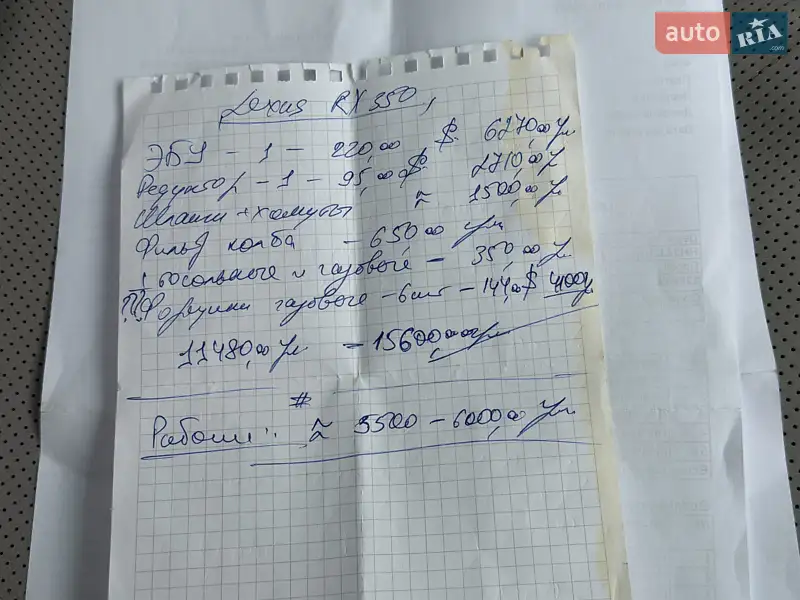 auto RIA.com
Lexus RX350,
ЭБУ - 1 - 220,00 $ 6270,00 Гр
Редуктор - 1 - 95,00 $ 2710,00 Гр
Шланги + хомуты ≈ 1500,00 Гр
Фильтр колба - 650,00 грн
Тосольные и газовые - 350,00 Гр
??? Форсунки газовые - 6шт - 144,00 $ 4100гр
11480,00 Гр - 15600,00 грн
#
Работы: ≈ 5500 - 6000,00 Грн